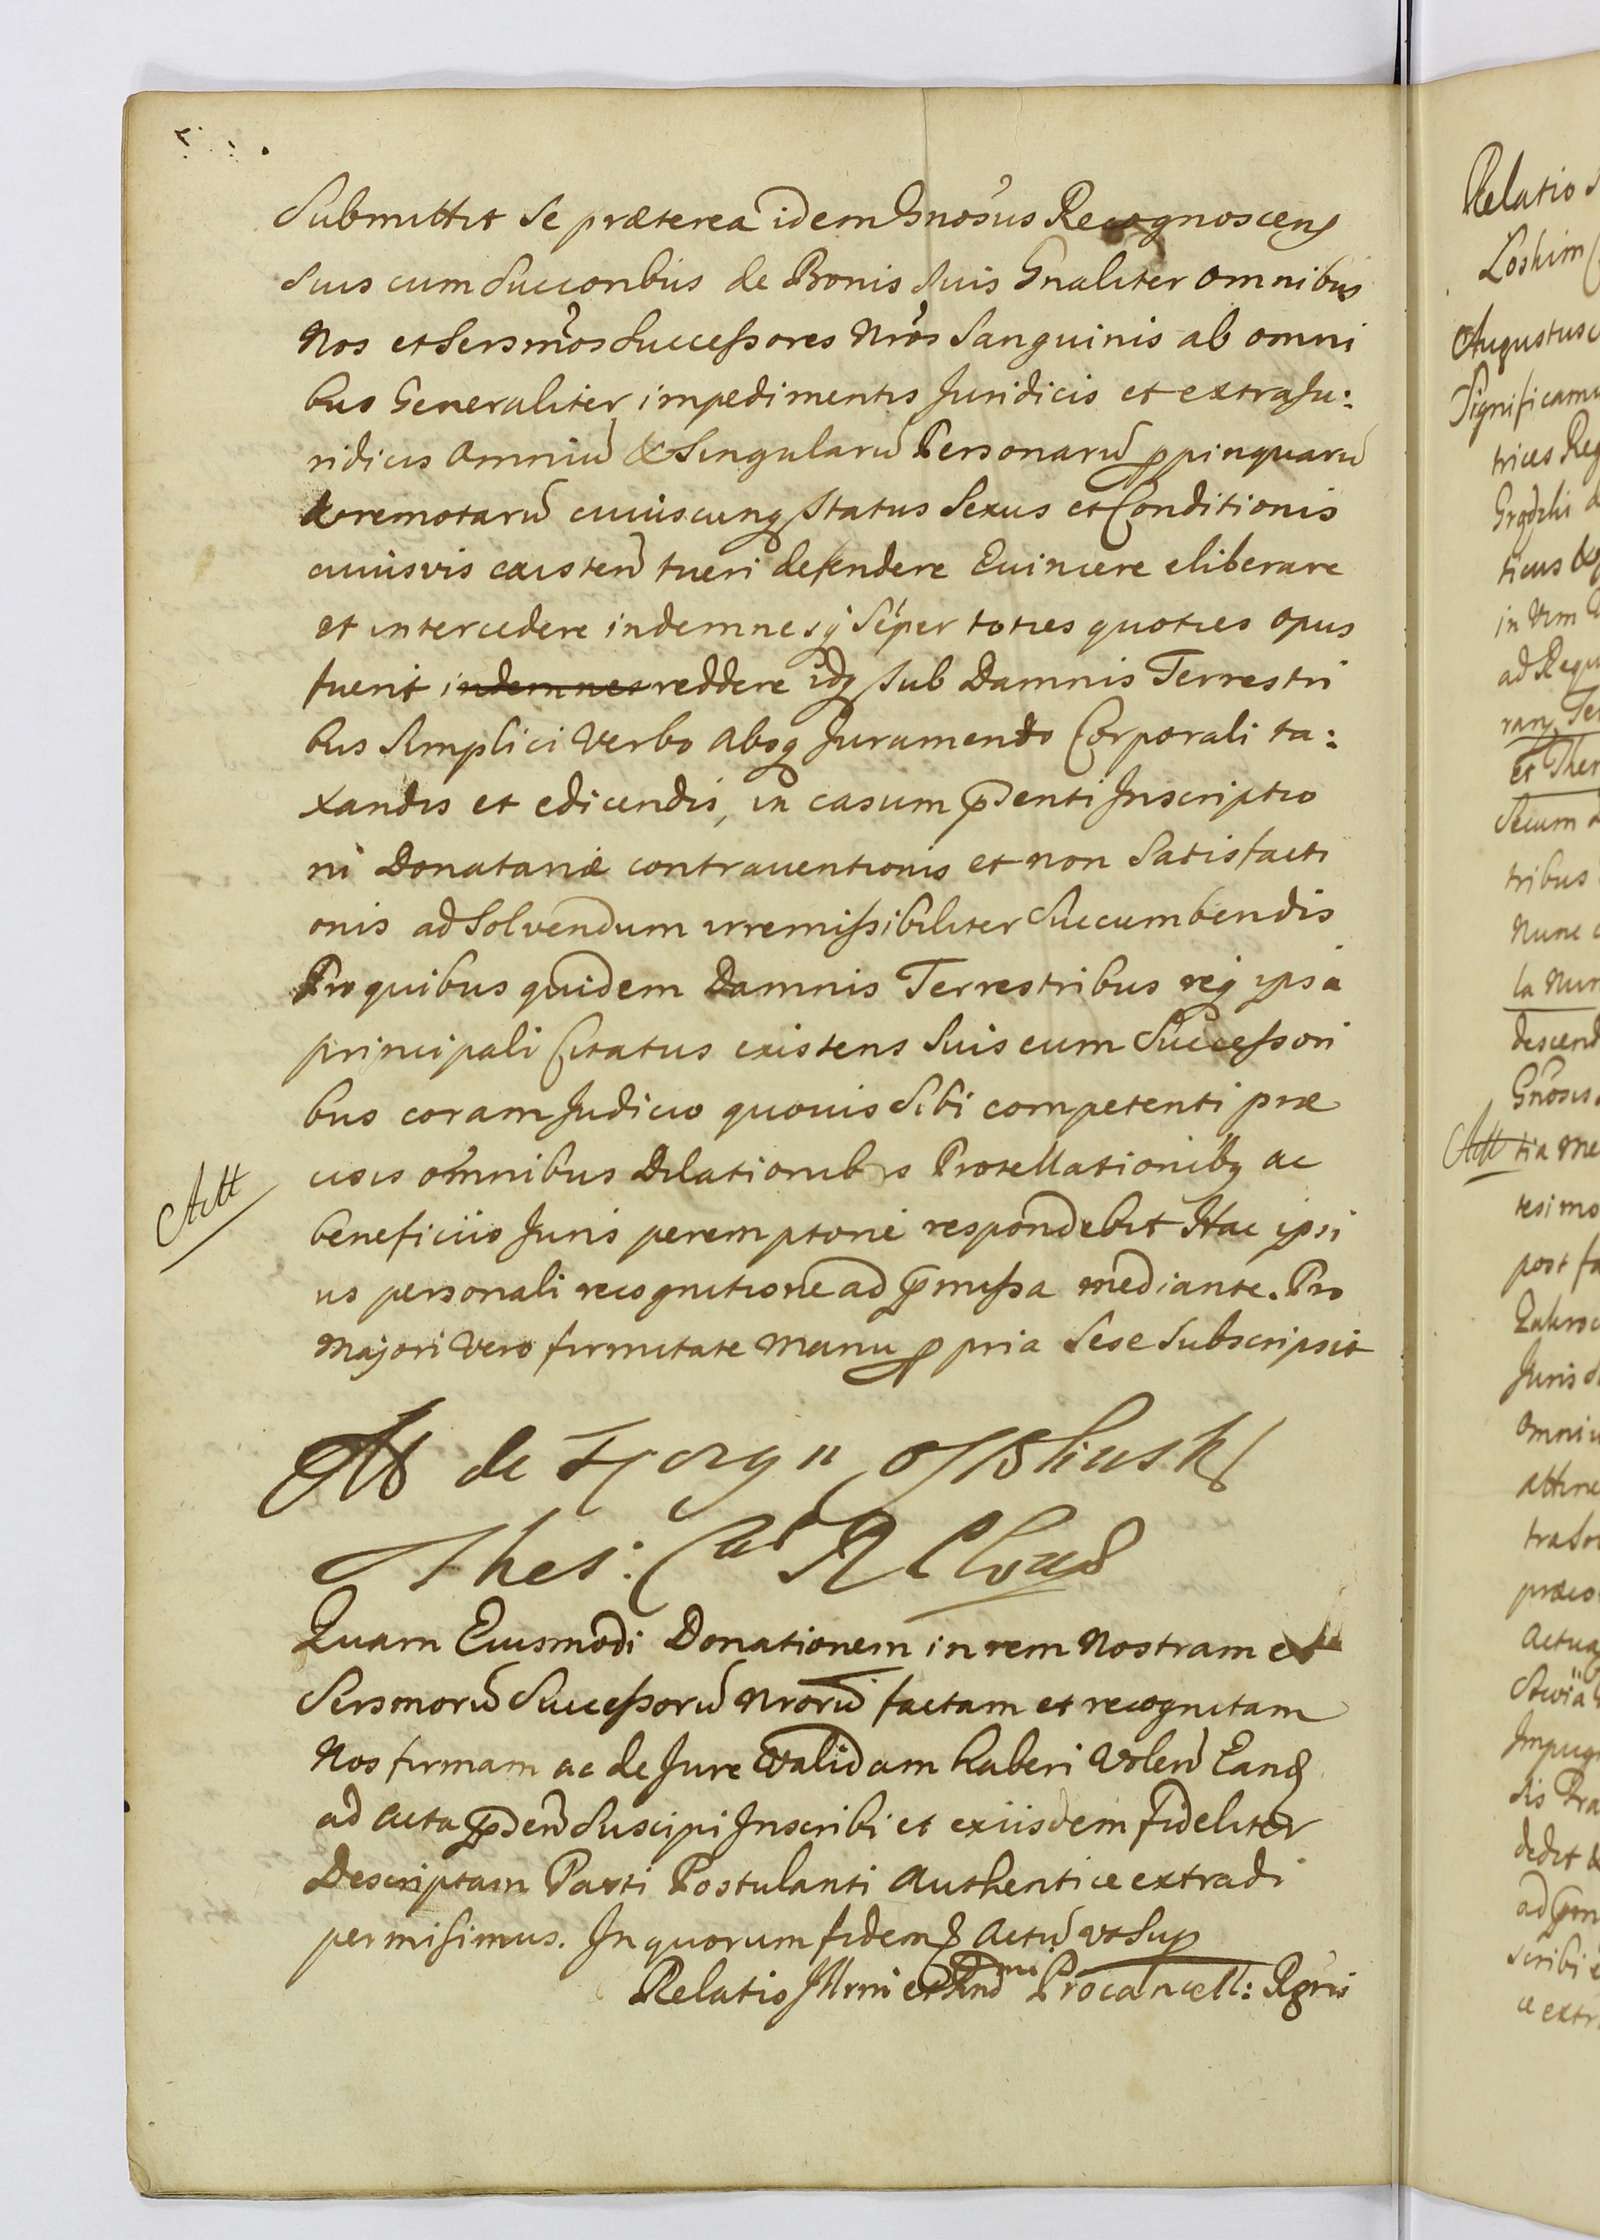 Submittit se præterea idem Gnosus Recognoscens
suis cum Succoribus de Bonis suis Gnaliter omnibus
Nos et Sersmos Successores Nros Sanguinis ab omni
bus Generaliter impedimentis Juridicis et extraju:
ridicis omniũ & Singularũ Personarũ ppinquarũ
& remotarũ cuiuscunq status sexus et Conditionis
cuiusvis existeñ tueri defendere Evincere eliberare
et intercedere indemnesq sẽper toties quoties opus
fuerit indemnes reddere idq sub Damnis Terrestri
bus simplici Verbo absq Juramento Corporali ta:
xandis et edicendis, in casum pñdenti Inscriptio
ni Donatariæ contraventionis et non Satisfacti
onis ad Solvendum irremissibiliter succumbendis
Pro quibus quidem Damnis Terrestribus req ipsa
principali Citatus existens suis cum Successori
bus coram Judicio quovis sibi competenti præ
cisis omnibus Dilationibus Protellationibq ac
Actt
beneficiis Juris peremptorie respondebit Hac ipsi
us personali recognitione ad pmissa mediante. Pro
Majori Vero firmitate manu ppria sese subscripsit
de
Thes:
Quam Eiusmodi Donationem in rem Nostram et
Sersmorũ Successorũ Nrorũ factam et recognitam
Nos firmam ac de Jure validam haberi Voleñ Eand
ad Acta pñdeñ Suscipi Inscribi et ex iisdem fideliter
Descriptam Parti Postulanti Authentice extradi
permisimus. In quorum fidem & Actũ vt Sup
Relatio Illrmi et Rnd mi Procancell: Rgnis
Relatio
Loskim
Augustus
Significamu
trices Reg
ticus &
ad Requ
Secum
tribus
Nunc
la Nun
descend
Gnosus
Actt
tia me
tesimo
post fa
Juris
omniu
attine
præcis
Actua
Impug
sis Pra
dedit &
scribi e
ce extr